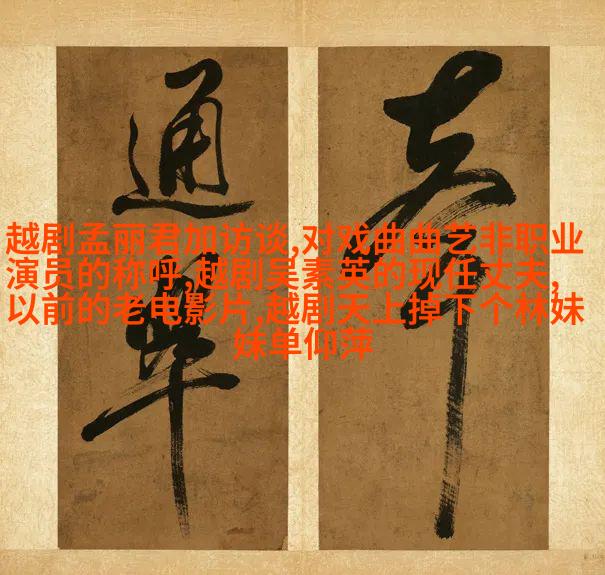 通
越剧孟丽君加访谈,对戏曲曲艺非职业
演员的称呼,越剧吴素英的现任丈夫,
以前的老电影片,越剧天上掉下个林妹
妹单仰萍